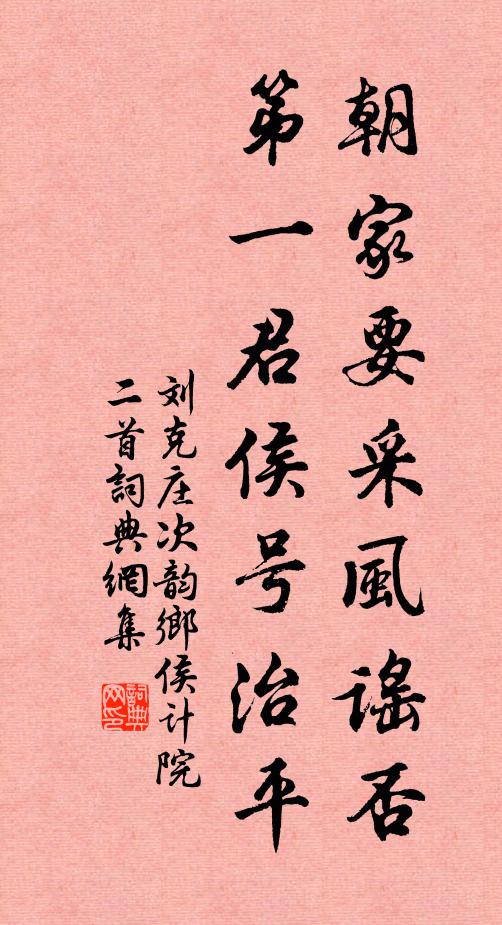 朝家要采風謠否
第一君侯号治平
刘克庄次韵鄉侯计院
二首詞典網集
詞典
网印